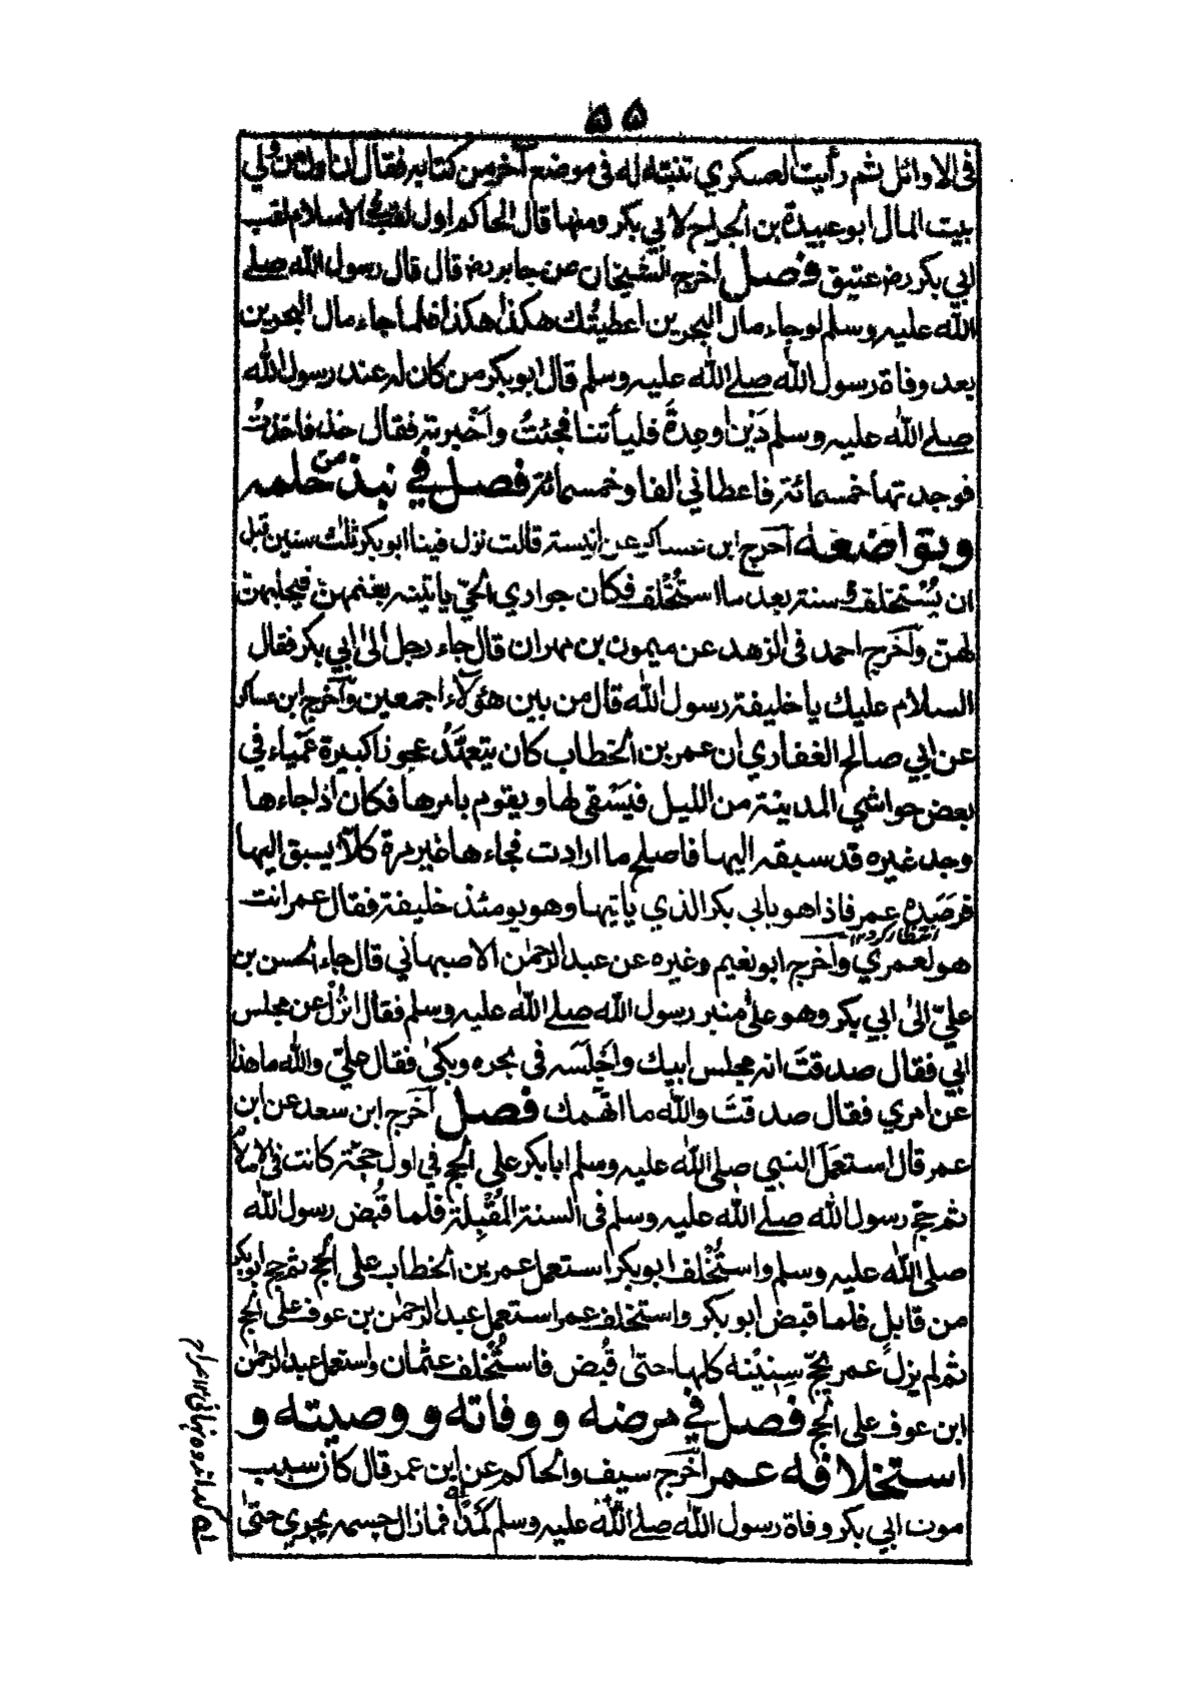 ۵۵
فى الاوائل ثم رأيت العسكري تنبه له فى موضع آخر من كتابه فقال ان اول من ولي
بيت المال ابو عبيدة بن الجراح لابي بكر ومنها قال الحاكم اول لقب فى الاسلام لقب
ابي بكر رض عتيق فصل اخرج الشيخان عن جابر رض قال قال رسول الله صلے
الله عليه وسلم لو جاء مال البحرين اعطيتك هكذا هكذا فلما جاء مال البحرين
بعد وفاة رسول الله صلے الله عليه وسلم قال ابو بكر من كان له عند رسول الله
صلے الله عليه وسلم دَيْن او عِدةَ فليأتنا فجئتُ واَخْبرته فقال خذ فاخذتُ
فوجدتها خمسمائة فاعطاني الفا وخمسمائة فصل في نبذ من حلمه
وتواضعه آخرج ابن عساكر عن انيسة قالت نزل فينا ابو بكر ثلث سنين قبل
ان يُسْتخلف و سنة بعد ما استُخْلف فكان جواري الحيّ ياتينه بغنمهن فيحلبهن
لهنّ وآخرج احمد فى الزهد عن ميمون بن مهران قال جاء رجل الىٰ ابي بكر فقال
السلام عليك يا خليفة رسول الله قال من بين هؤلاء اجمعين وآخرج ابن عساكر
عن ابي صالح الغفاري ان عمر بن الخطاب كان يتعهَّدُ عجوزا كبيرة عَمْياء في
بعض حواشي المدينة من الليل فيَسْقى لها ويقوم بامرها فكان اذا جاءها
وجد غيره قد سبقه اليها فاصلح ما ارادت فجاءها غير مرة كلّا يسبق اليها
فرصَدِه عمر فاذا هو بابي بكر الذي ياتيها وهو يومئذ خليفة فقال عمر انت
انتظار کرد ۱۲
هو لعمري وآخرج ابو نعيم وغيره عن عبد الرحمٰن الاصبهاني قال جاء الحسن بن
عليّ الىٰ ابي بكر وهو علىٰ منبر رسول الله صلے الله عليه وسلم فقال انْزُلْ عن مجلس
ابي فقال صدقتَ انه مجلس ابيك واَجْلَسَه فى حجره وبكىٰ فقال عليّ والله ما هذا
عن امري فقال صدقتَ والله ما اتّهمك فصل آخرج ابن سعد عن ابن
عمر قال استعمَلَ النبي صلى الله عليه وسلم ابا بكر على الحج في اول حجّة كانت فى الاسلام
ثم حجّ رسول الله صلے الله عليه وسلم فى السنة المُقْبِلة فلما قُبض رسول الله
صلى الله عليه وسلم واستُخْلف ابو بكر استعمل عمر بن الخطاب على الحج ثم حج ابو بكر
من قابلٍ فلما قبض ابو بكر واستخلف عمر استعمل عبد الرحمٰن بن عوف على الحج
ثم لم يزل عمر يحجّ سِنِيْنَه كلها حتىٰ قُبض فاستُخْلف عثمان واستعمل عبد الرحمٰن
ابن عوف على الحج فصل في مرضه ووفاته ووصيته و
استخلافه عمر آخرج سيف والحاكم عن ابن عمر قال كان سبب
موت ابي بكر وفاة رسول الله صلے الله عليه وسلم كَمَدًا فما زال جسمه يجري حتىٰ